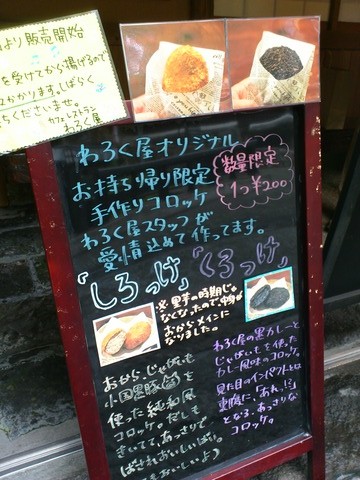 より販売開始
を受けてから揚げるので
かかります。しばらく
ちくださいませ。
カフェレストラン
わろく屋
わろく屋オリジナル
お持ち帰り限定
手作りコロッケ
わろく屋スタッフが
愛情込めて作ってます。
数量限定
1つ¥200
「しろっけ」
※里芋の時期じゃ
なくなったので、中身が
おからメインに
なりました。
おから、じゃがいも
小国黒豚
使った純和風
コロッケ。だしも
きいてて、あっさり
「くろっけ」
わろく屋の黒カレーと
じゃがいもを使った
カレー風味のコロッケ。
見た目のインパクトとは
裏腹に、あれ！？
となる、あっさりな
コロッケ。